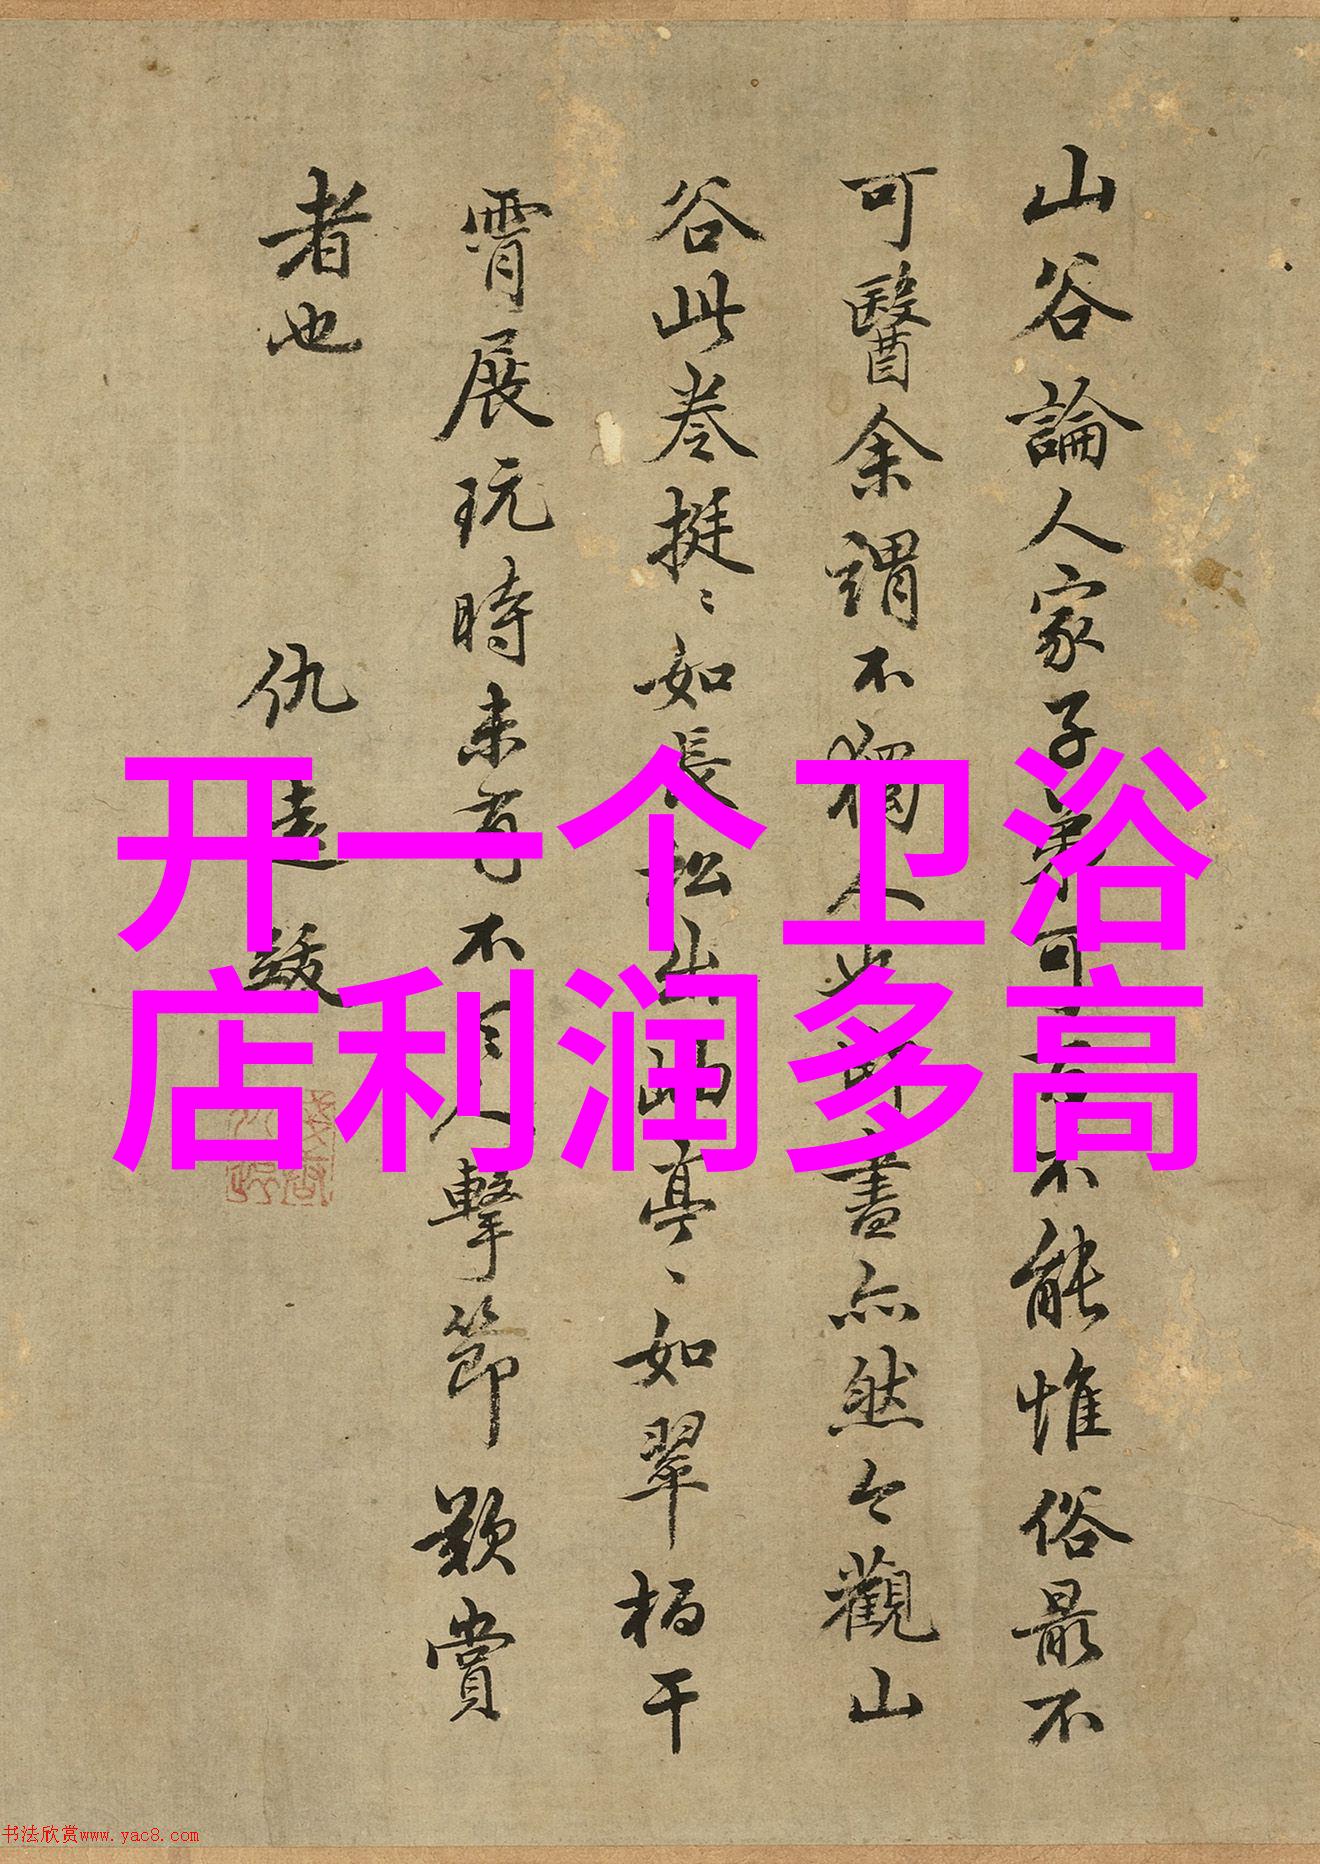 山谷論人家子弟可百不能惟俗最不
可醫余謂不獨人也書亦然今觀山
谷此卷挺〻如長松出澗亭〻如翠柏干
霄展玩時未有不令人擊節歎賞
者也 仇遠跋
开一个卫浴
店利润多高
书法欣赏www.yac8.com